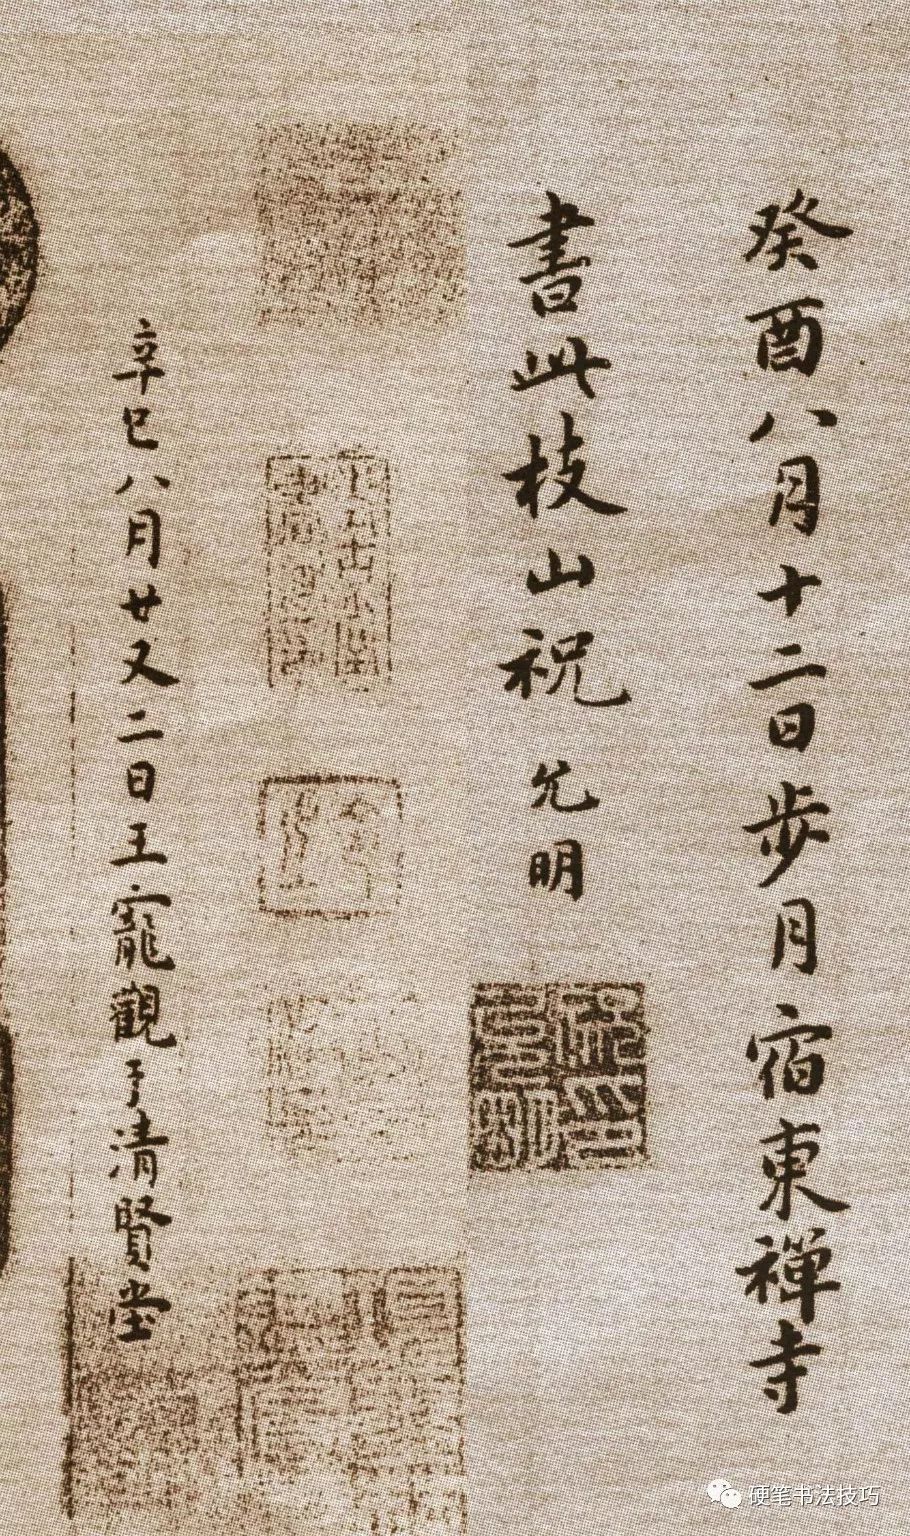 癸酉八月十二日步月宿東禪寺
書此枝山祝允明
辛巳八月廿又二日王寵觀于清賢堂
硬笔书法技巧